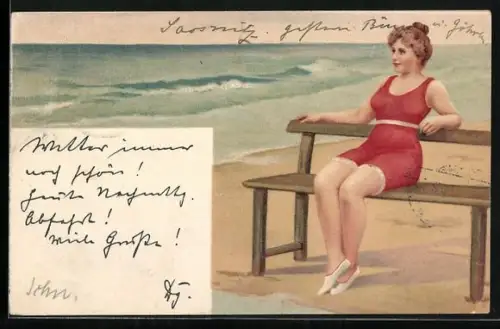 Sassnitz, gestern Binz u. Göhren
Wetter immer
noch schön!
Heute Nachmttg.
Abfahrt!
viele Grüße!
John.